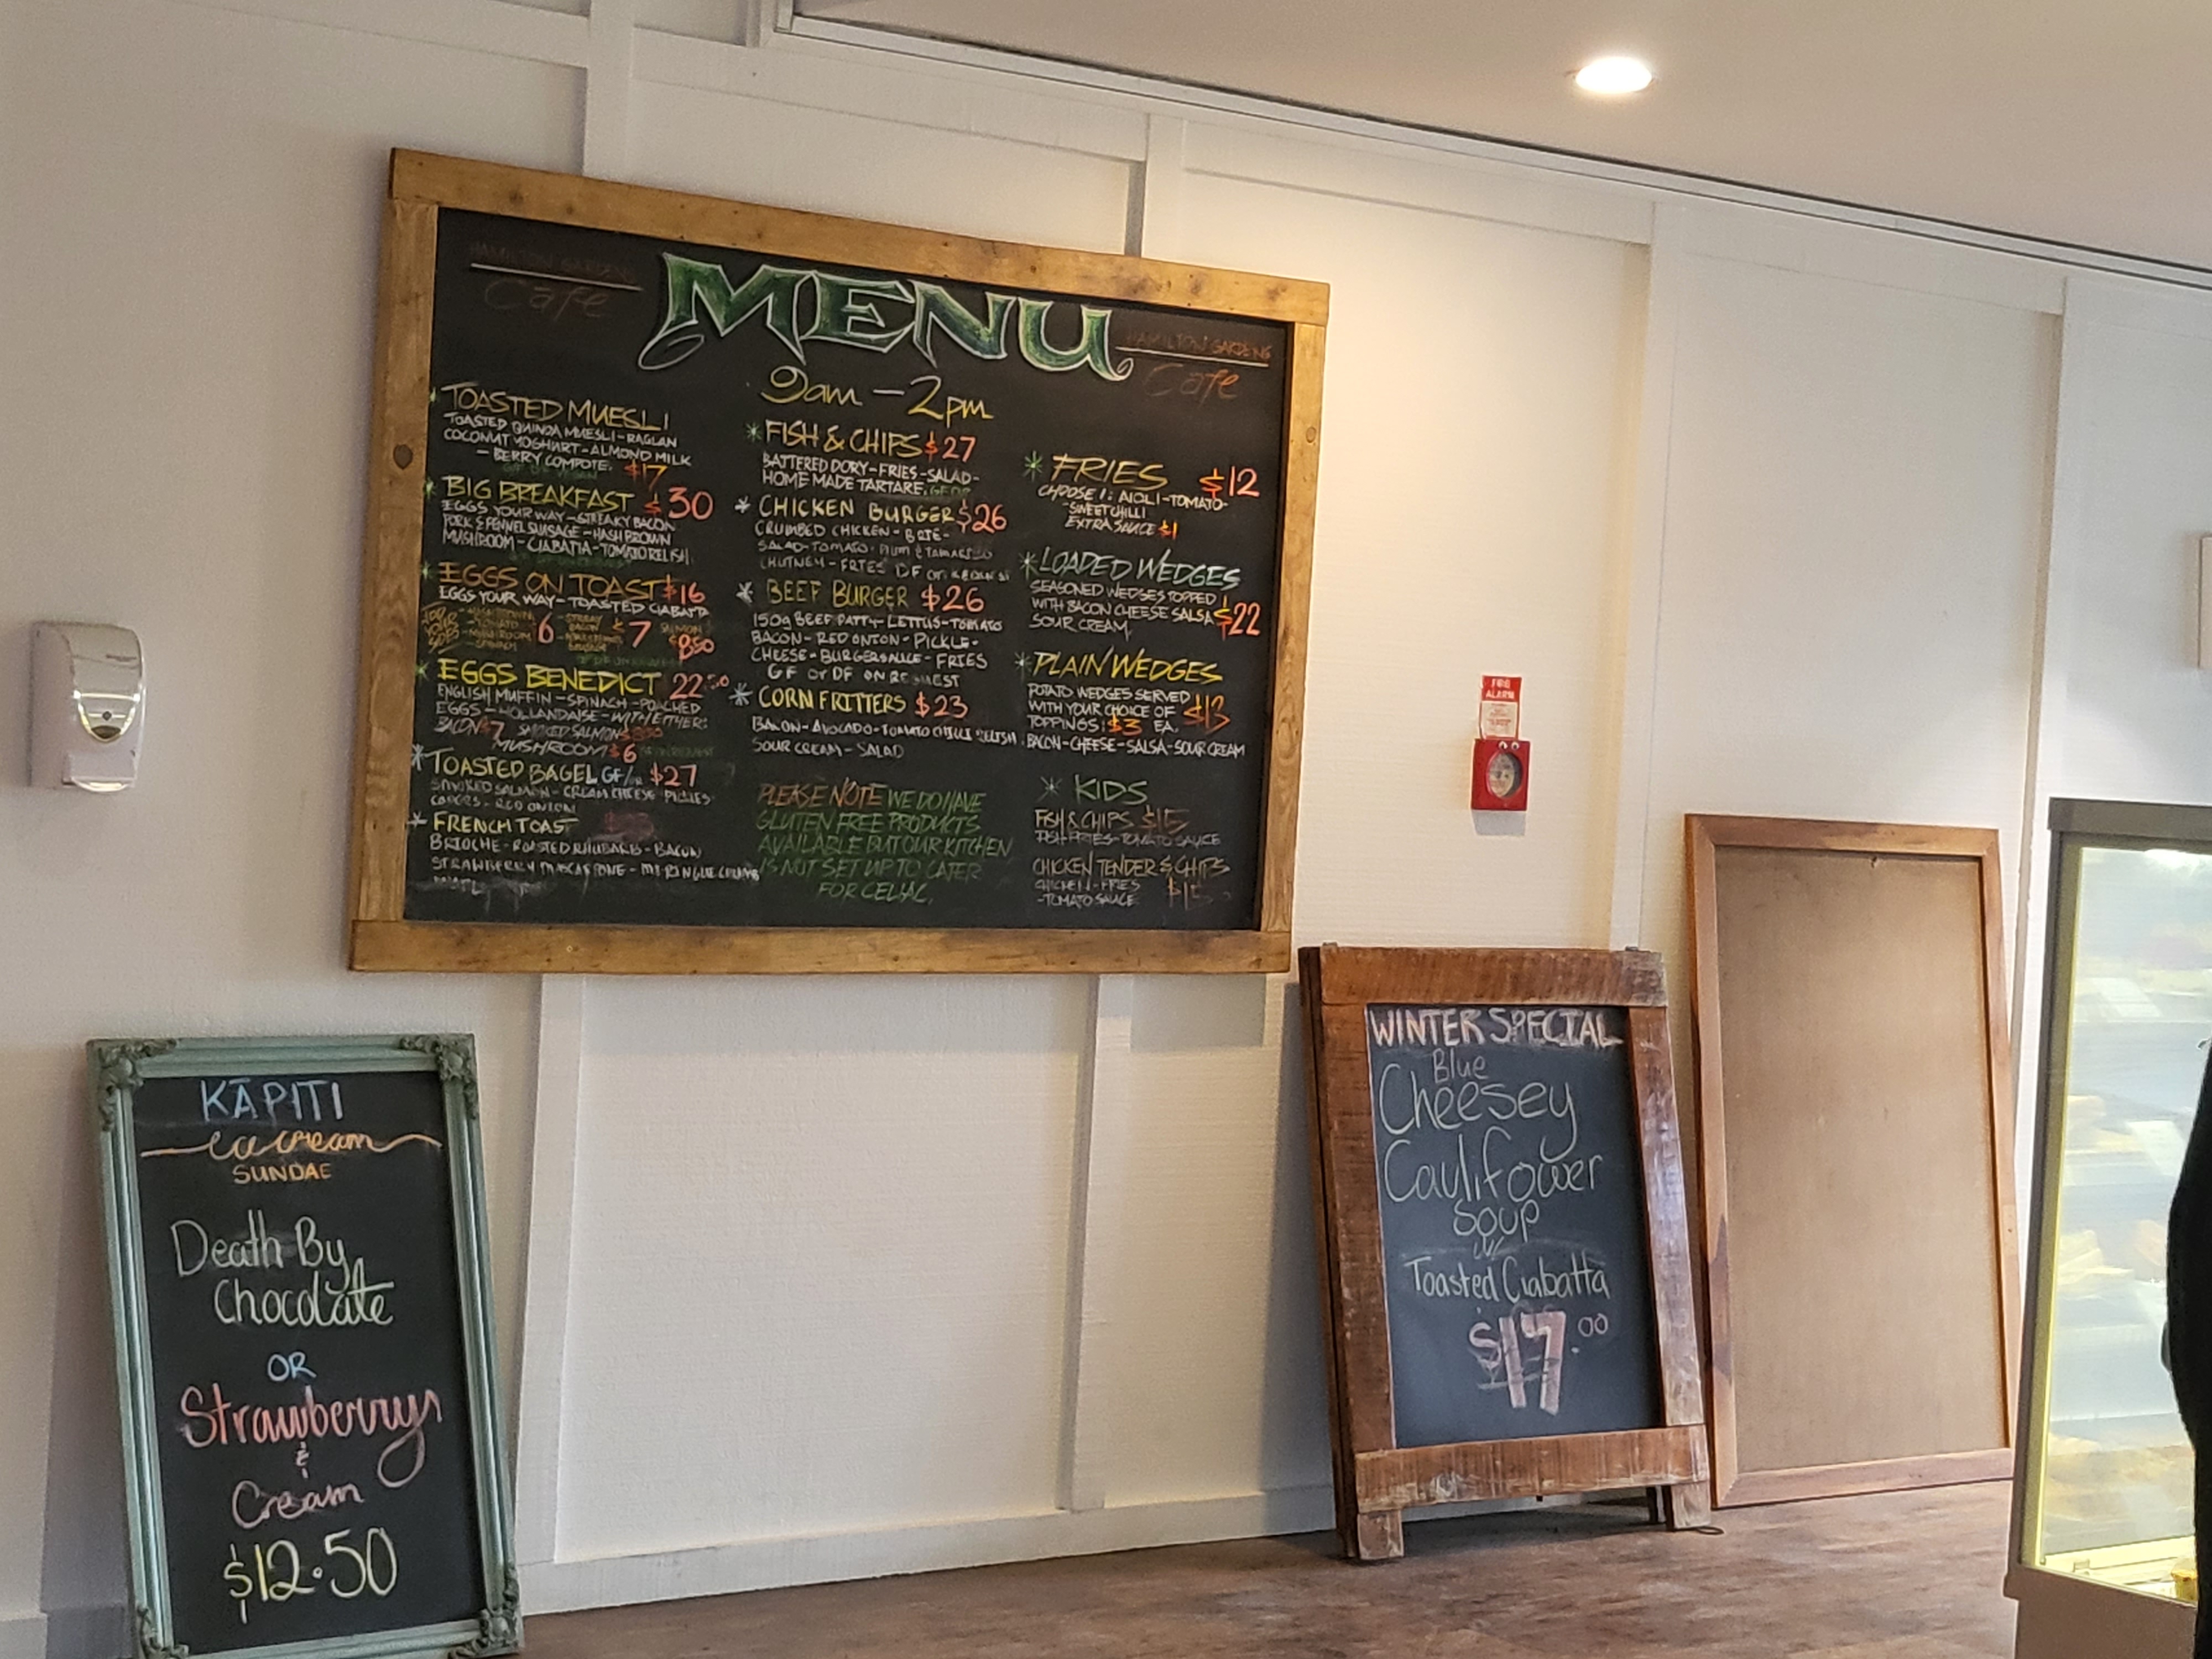 HAMILTON GARDENS
Cafe
MENU
HAMILTON GARDENS
Cafe
9am - 2pm
TOASTED MUESLI
TOASTED QUINOA MUESLI - RAGLAN
COCONUT YOGHURT - ALMOND MILK
- BERRY COMPOTE. $17
BIG BREAKFAST $30
EGGS YOUR WAY - STREAKY BACON
PORK & FENNEL SAUSAGE - HASH BROWN
MUSHROOM - CIABATTA - TOMATO RELISH
EGGS ON TOAST $16
EGGS YOUR WAY - TOASTED CIABATTA
- TOMATO
- MUSHROOM
- SPINACH
6
$7
SALMON
$8.50
EGGS BENEDICT 22.50
ENGLISH MUFFIN - SPINACH - POACHED
EGGS - HOLLANDAISE - WITH EITHER:
BACON $7 SMOKED SALMON $8.50
MUSHROOM $6
TOASTED BAGEL GF/ $27
SMOKED SALMON - CREAM CHEESE - PICKLES
CAPERS - RED ONION
FRENCH TOAST
BRIOCHE - ROASTED RHUBARB - BACON
STRAWBERRY MASCAPONE - MERINGUE CRUMB
* FISH & CHIPS $27
BATTERED DORY - FRIES - SALAD -
HOME MADE TARTARE.
* CHICKEN BURGER $26
CRUMBED CHICKEN - BRIE -
SALAD - TOMATO - PLUM & TAMARILLO
CHUTNEY - FRIES DF
* BEEF BURGER $26
150g BEEF PATTY - LETTUS - TOMATO
BACON - RED ONION - PICKLE -
CHEESE - BURGERSAUCE - FRIES
GF or DF ON REQUEST
* CORN FRITTERS $23
BACON - AVOCADO - TOMATO CHILLI RELISH
SOUR CREAM - SALAD
PLEASE NOTE WE DO HAVE
GLUTEN FREE PRODUCTS
AVAILABLE BUT OUR KITCHEN
IS NOT SET UP TO CATER
FOR CELIAC.
* FRIES $12
CHOOSE 1: AIOLI - TOMATO -
- SWEET CHILLI
EXTRA SAUCE $1
* LOADED WEDGES
SEASONED WEDGES TOPPED
WITH BACON CHEESE SALSA $22
SOUR CREAM.
* PLAIN WEDGES
POTATO WEDGES SERVED
WITH YOUR CHOICE OF $13
TOPPINGS: $3 EA.
BACON - CHEESE - SALSA - SOUR CREAM
* KIDS
FISH & CHIPS $15
FISH - FRIES - TOMATO SAUCE
CHICKEN TENDER & CHIPS
CHICKEN - FRIES $15
- TOMATO SAUCE
FIRE
ALARM
KĀPITI
ice cream
SUNDAE
Death By
Chocolate
OR
Strawberrys
&
Cream
$12.50
WINTER SPECIAL
Blue
Cheesey
Caulifower
Soup
w/
Toasted Ciabatta
$17.00